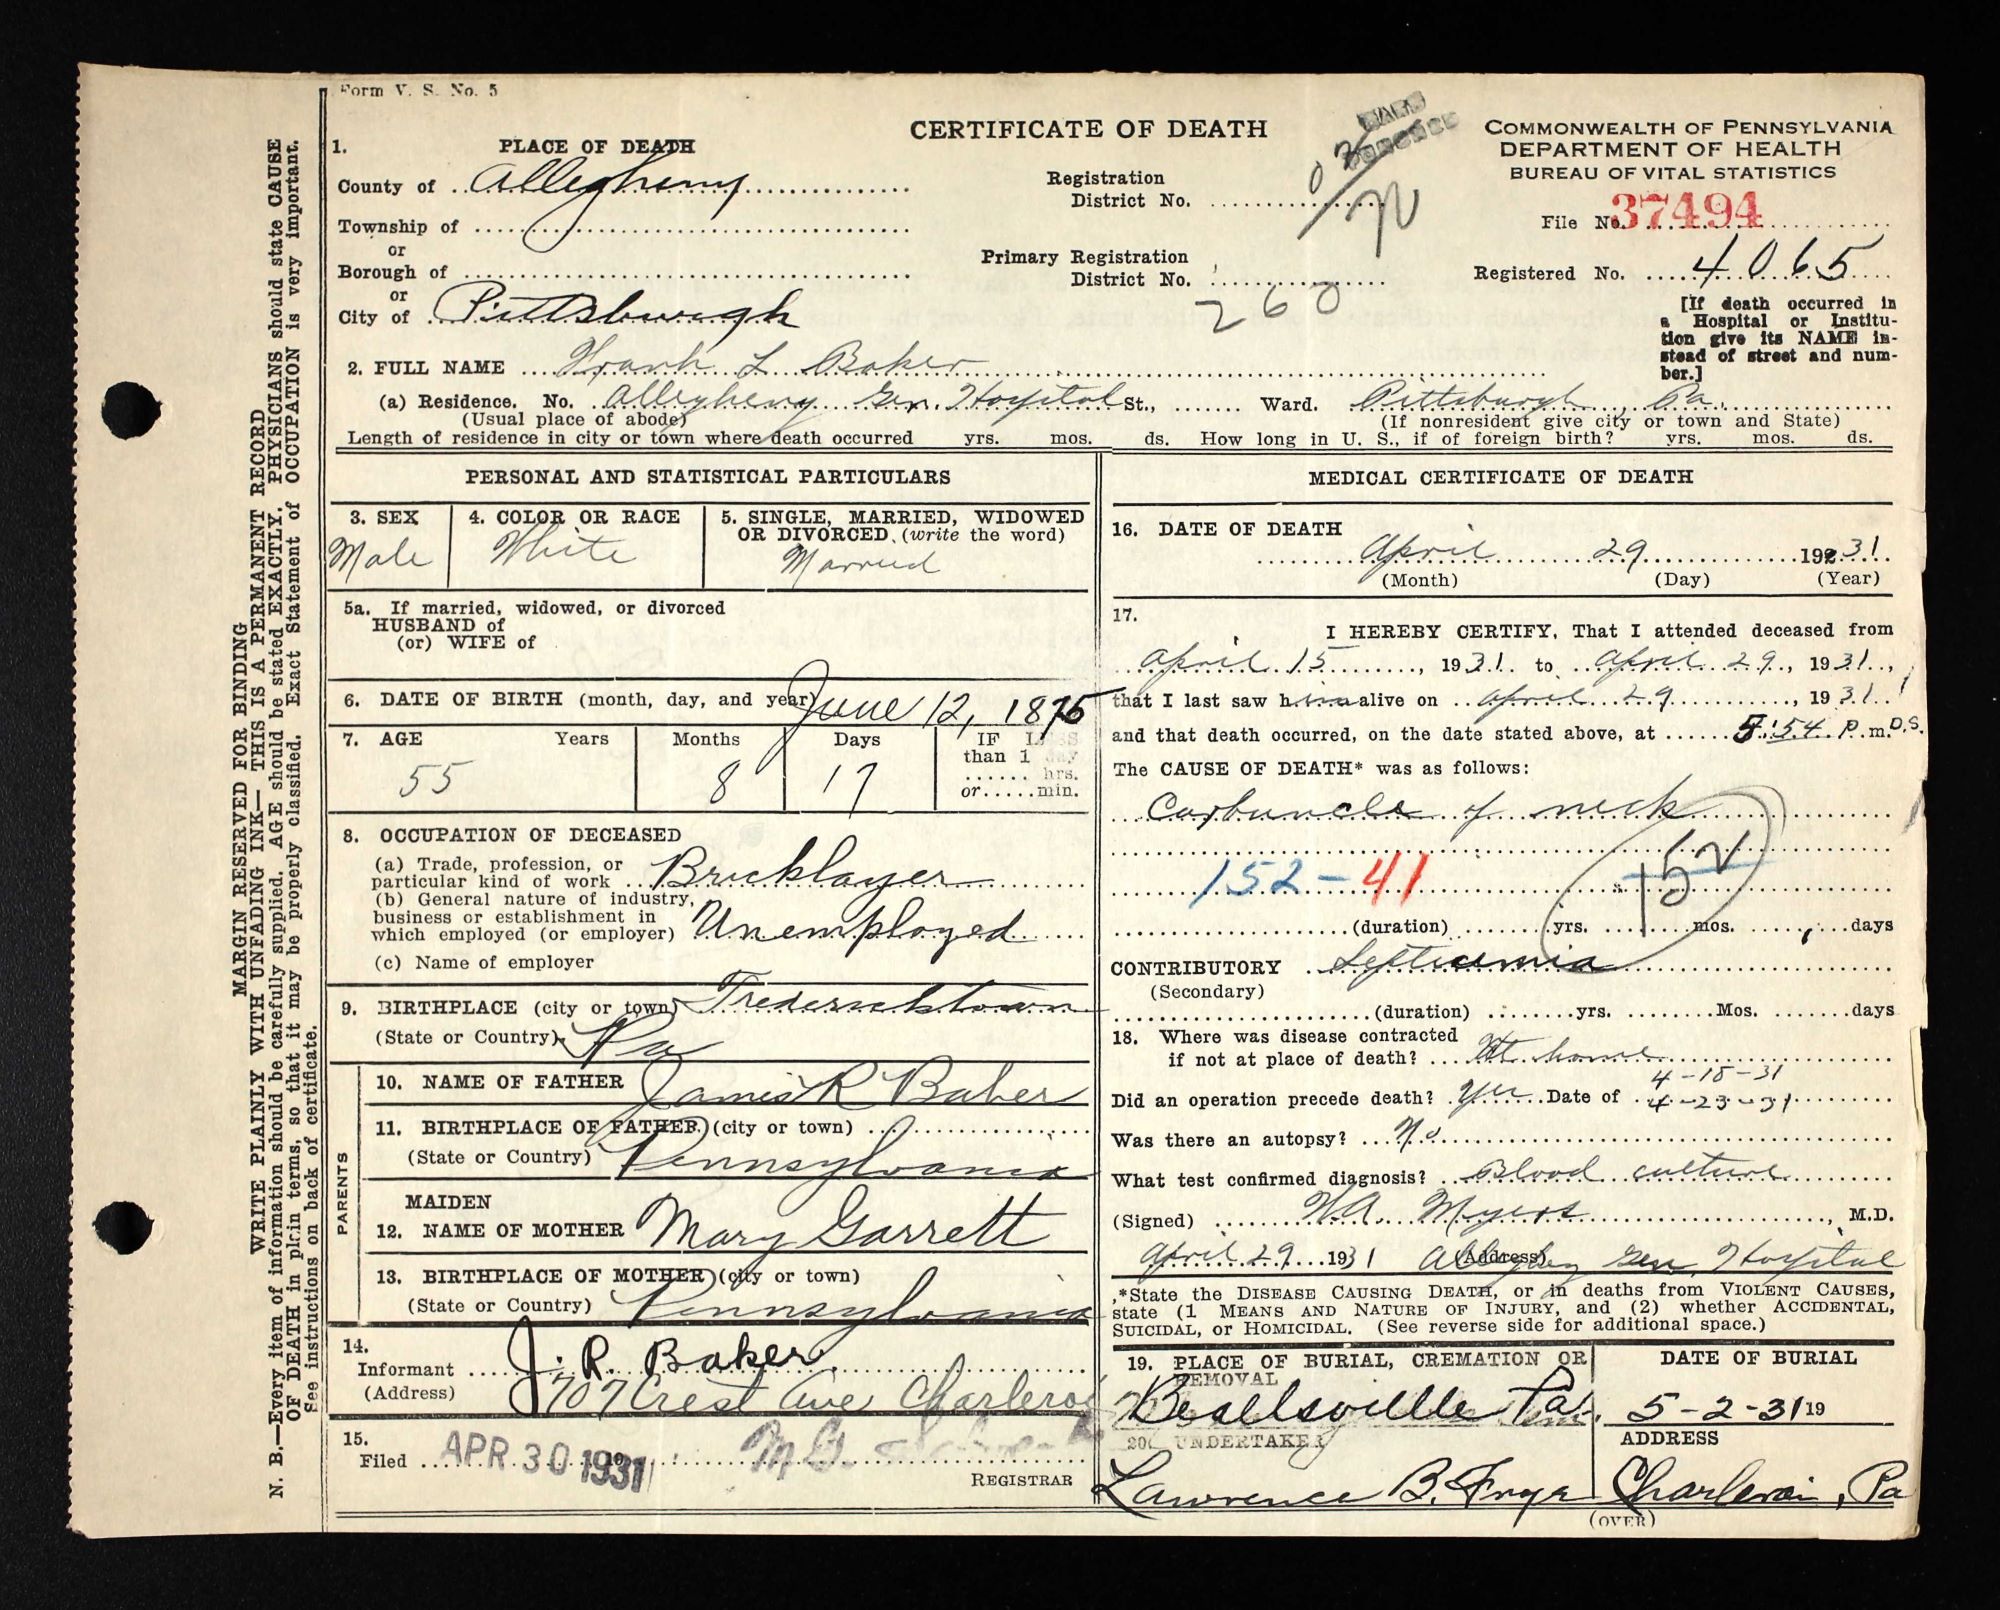 Form V. S. No. 5
CERTIFICATE OF DEATH
COMMONWEALTH OF PENNSYLVANIA
DEPARTMENT OF HEALTH
BUREAU OF VITAL STATISTICS
1. PLACE OF DEATH
County of Allegheny
Township of
or
Borough of
or
City of Pittsburgh
Registration
District No.
Primary Registration
District No.
260
File No. 37494
Registered No. 4065
[If death occurred in
a Hospital or Institu-
tion give its NAME in-
stead of street and num-
ber.]
2. FULL NAME Frank L Baker
(a) Residence. No. Allegheny Gen. Hospital St., Ward. Pittsburgh, Pa.
(Usual place of abode) (If nonresident give city or town and State)
Length of residence in city or town where death occurred yrs. mos. ds. How long in U. S., if of foreign birth? yrs. mos. ds.
PERSONAL AND STATISTICAL PARTICULARS
3. SEX
Male
4. COLOR OR RACE
White
5. SINGLE, MARRIED, WIDOWED
OR DIVORCED (write the word)
Married
5a. If married, widowed, or divorced
HUSBAND of
(or) WIFE of
6. DATE OF BIRTH (month, day, and year) June 12, 1875
7. AGE Years Months Days IF LESS
than 1 day
hrs.
or min.
55 8 17
8. OCCUPATION OF DECEASED
(a) Trade, profession, or
particular kind of work Bricklayer
(b) General nature of industry,
business or establishment in
which employed (or employer) Unemployed
(c) Name of employer
9. BIRTHPLACE (city or town) Fredericktown
(State or Country) Pa
PARENTS
10. NAME OF FATHER James R Baker
11. BIRTHPLACE OF FATHER (city or town)
(State or Country) Pennsylvania
MAIDEN
12. NAME OF MOTHER Mary Garrett
13. BIRTHPLACE OF MOTHER (city or town)
(State or Country) Pennsylvania
14.
Informant J. R. Baker
(Address) 707 Crest Ave Charleroi
15.
Filed APR 30 1931
REGISTRAR
MEDICAL CERTIFICATE OF DEATH
16. DATE OF DEATH
April 29 192 31
(Month) (Day) (Year)
17.
I HEREBY CERTIFY, That I attended deceased from
April 15, 1931 to April 29, 1931,
that I last saw him alive on April 29, 1931
and that death occurred, on the date stated above, at 5:54 P. m. D.S.
The CAUSE OF DEATH* was as follows:
Carbuncle of neck
152-41
152
(duration) yrs. mos. days
CONTRIBUTORY Septicemia
(Secondary)
(duration) yrs. Mos. days
18. Where was disease contracted
if not at place of death? At home
4-18-31
Did an operation precede death? Yes Date of 4-23-31
Was there an autopsy? No
What test confirmed diagnosis? Blood culture
(Signed) W.A. Myers, M.D.
April 29 1931 (Address) Allegheny Gen. Hospital
*State the DISEASE CAUSING DEATH, or in deaths from VIOLENT CAUSES,
state (1 MEANS AND NATURE OF INJURY, and (2) whether ACCIDENTAL,
SUICIDAL, or HOMICIDAL. (See reverse side for additional space.)
19. PLACE OF BURIAL, CREMATION OR
REMOVAL
Beallsville Pa.
DATE OF BURIAL
5-2-31 19
20. UNDERTAKER
Lawrence B. Frye
ADDRESS
Charleroi, Pa
(OVER)
MARGIN RESERVED FOR BINDING
WRITE PLAINLY WITH UNFADING INK— THIS IS A PERMANENT RECORD
N. B.—Every item of information should be carefully supplied. AGE should be stated EXACTLY. PHYSICIANS should state CAUSE
OF DEATH in plain terms, so that it may be properly classified. Exact Statement of OCCUPATION is very important.
See instructions on back of certificate.